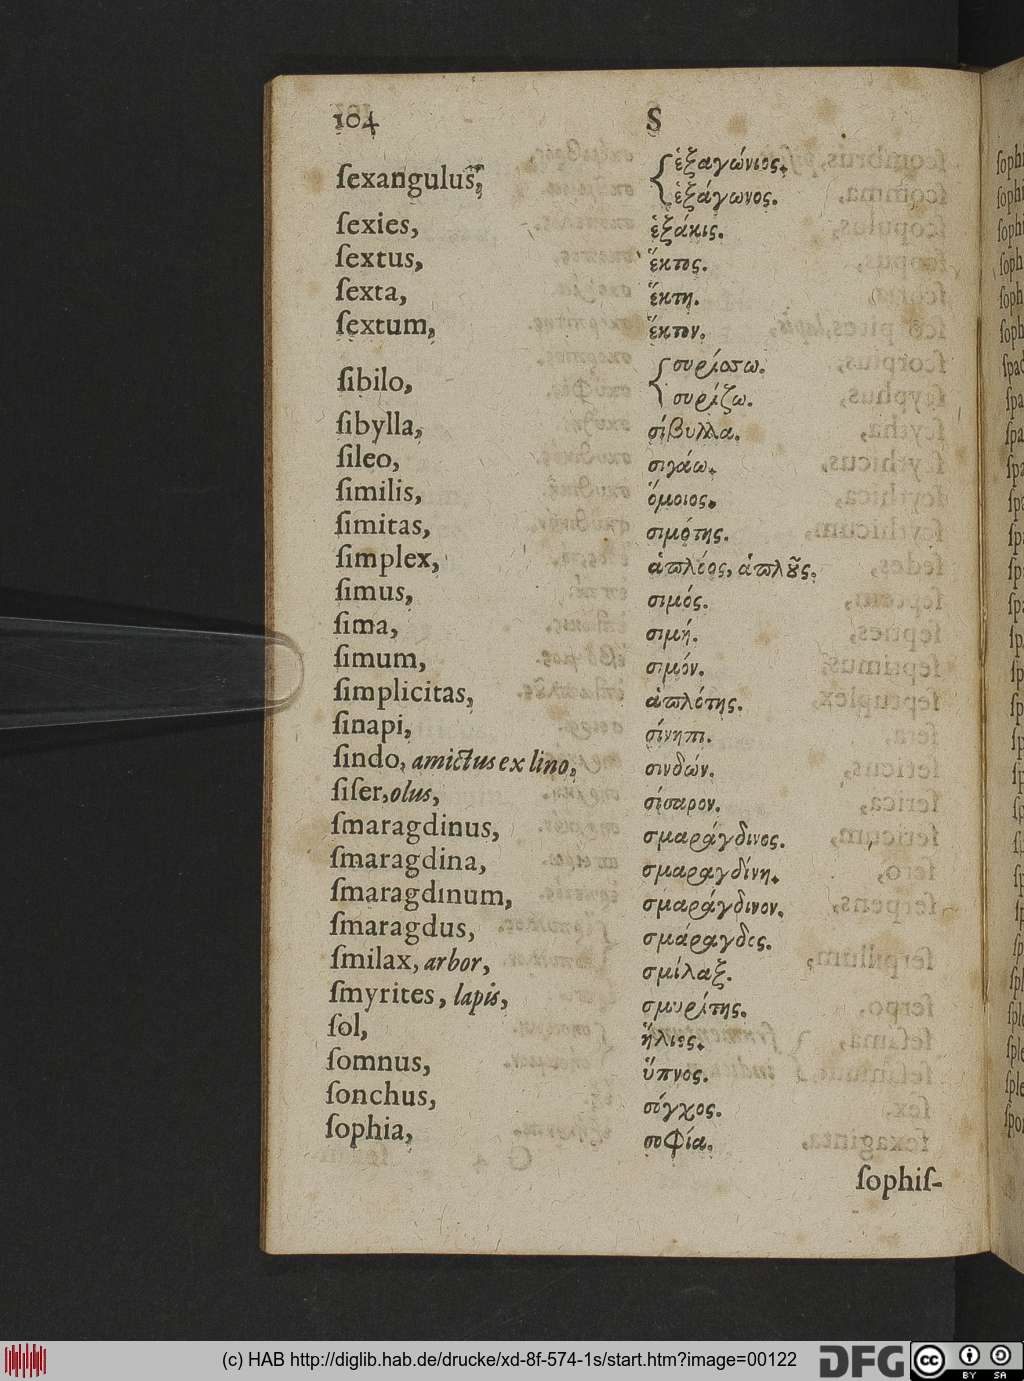 104 S
ſexangulus, { ἑξαγώνιος.
ἑξάγωνος.
ſexies, ἑξάκις.
ſextus, ἕκτος.
ſexta, ἕκτη.
ſextum, ἕκτον.
ſibilo, { συρίσσω.
συρίζω.
ſibylla, σίβυλλα.
ſileo, σιγάω.
ſimilis, ὅμοιος.
ſimitas, σιμότης.
ſimplex, ἁπλέος, ἁπλοῦς.
ſimus, σιμός.
ſima, σιμή.
ſimum, σιμόν.
ſimplicitas, ἁπλότης.
ſinapi, σίνηπι.
ſindo, amictus ex lino, σινδών.
ſiſer, olus, σίσαρον.
ſmaragdinus, σμαράγδινος.
ſmaragdina, σμαραγδίνη.
ſmaragdinum, σμαράγδινον.
ſmaragdus, σμάραγδος.
ſmilax, arbor, σμίλαξ.
ſmyrites, lapis, σμυρίτης.
ſol, ἥλιος.
ſomnus, ὕπνος.
ſonchus, σόγχος.
ſophia, σοφία.
ſophiſ-
(c) HAB http://diglib.hab.de/drucke/xd-8f-574-1s/start.htm?image=00122
DFG
cc BY SA